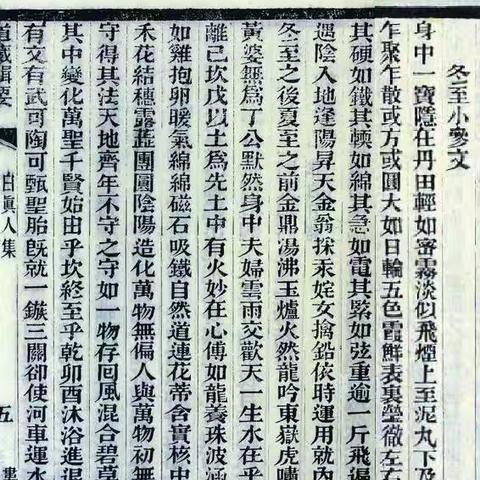 冬至小參文
身中一寶隱在丹田輕如密霧淡似飛煙上至泥丸下及
乍聚乍散或方或圓大如日輪五色霞鮮表裏瑩徹左右
其硬如鐵其輭如綿其急如電其緊如弦重逾一斤飛遍
遇陰入地逢陽昇天金翁採汞姹女擒鉛依時運用就內
冬至之後夏至之前金鼎湯沸玉爐火然龍吟東嶽虎嘯
黃婆無爲丁公默然身中夫婦雲雨交歡天一生水在乎
離己坎戊以土爲先土中有火妙在心傳如龍養珠波涵
如雞抱卵暖氣綿綿磁石吸鐵自然道連花蒂含實核中
禾花結穗露蕊團圓陰陽造化萬物無偏人與萬物初無
守得其法天地齊年不守之守如一物存囘風混合碧草
其中變化萬聖千賢始由乎坎終至乎乾卯酉沐浴進退
有文有武可陶可甄聖胎旣就一鏃三關卻使河車運水
道藏輯要
白眞人集
五
婁